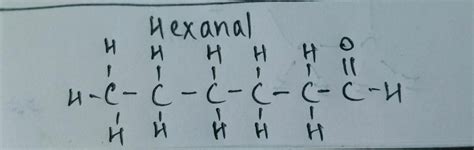 Hexanal
H H H H H O
H-C-C-C-C-C-C-H
H H H H H